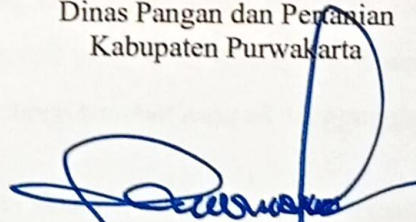 Dinas Pangan dan Pertanian
Kabupaten Purwakarta